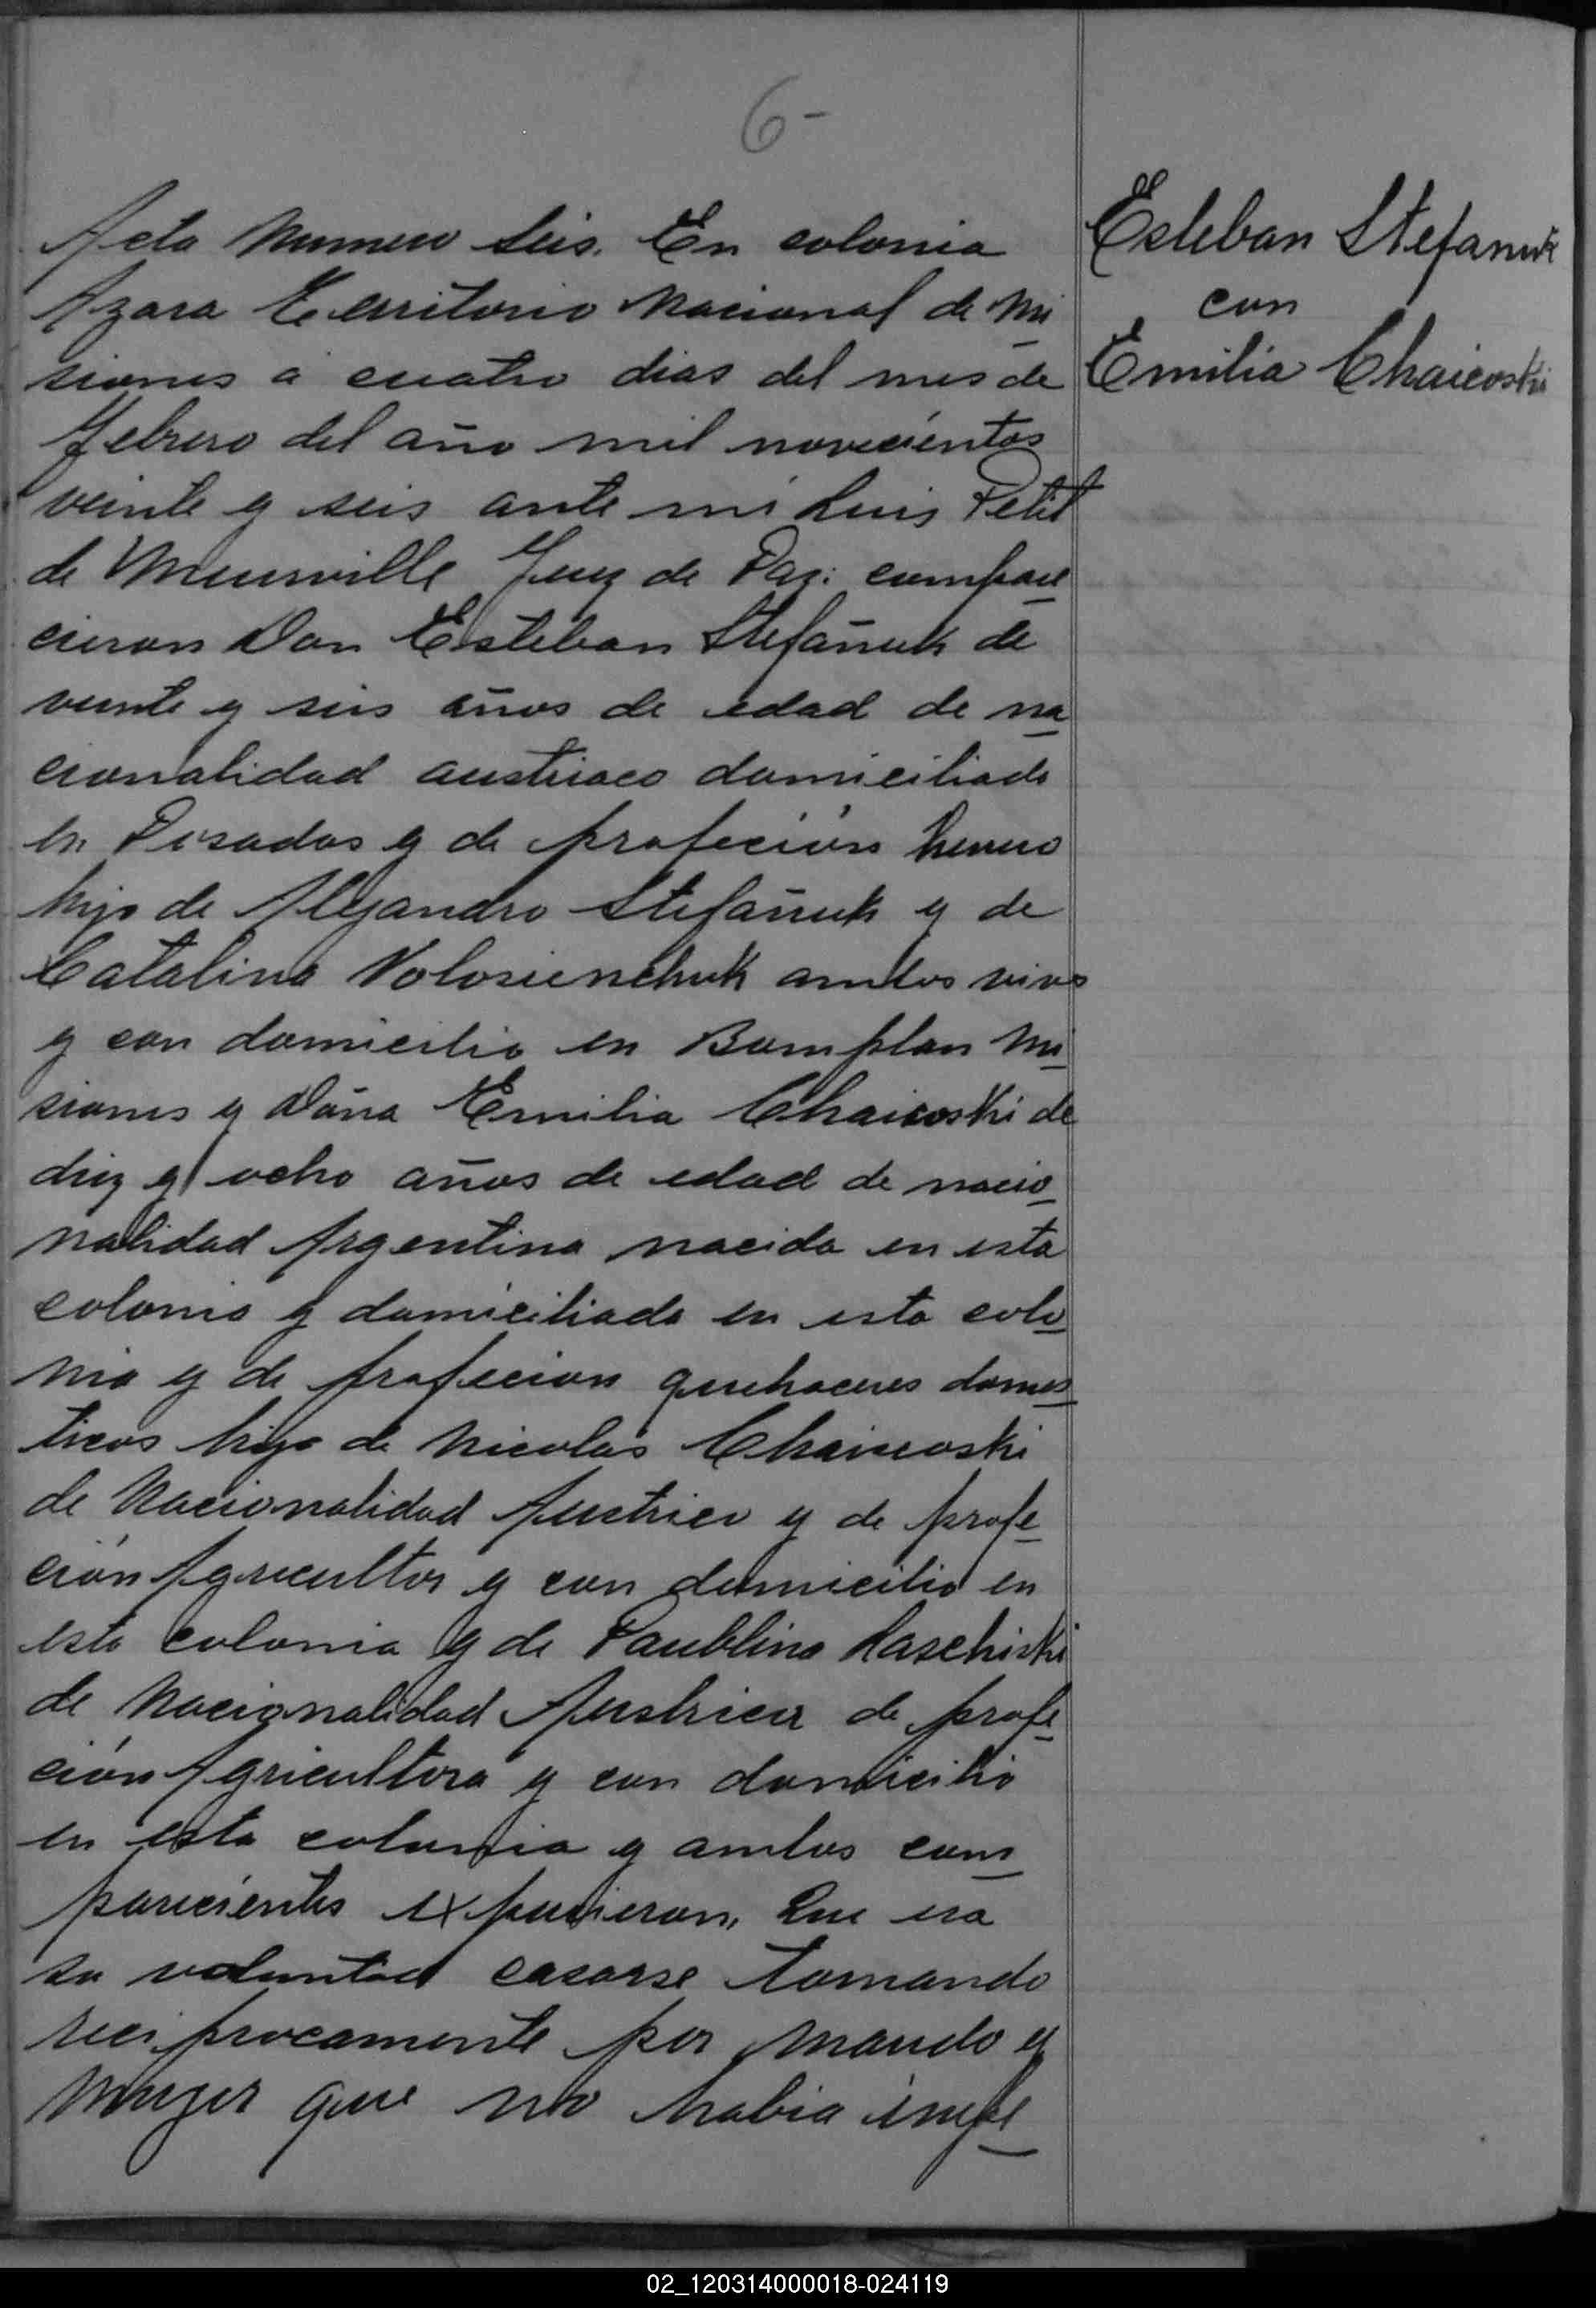 6-
Acta Numero Seis. En colonia
Azara Territorio Nacional de Mi
siones a cuatro dias del mes de
Febrero del año mil novecientos
veinte y seis ante mi Luis Petit
de Meurville Juez de Paz: compare
cieron Don Esteban Stefañuk de
veinte y seis años de edad de na
cionalidad austriaco domiciliado
en Posadas y de profeción herrero
hijo de Alejandro Stefañuk y de
Catalina Volosienchuk ambos vivos
y con domicilio en Bomplan Mi
siones y Doña Emilia Chaicoski de
diez y ocho años de edad de nacio
nalidad Argentina nacida en esta
colonia y domiciliada en esta colo
nia y de profecion quehaceres domes
ticos hija de Nicolas Chaicoski
de Nacionalidad Austrico y de profe
ción Agricultor y con domicilio en
esta colonia y de Paublina
de Nacionalidad Austrica de profe
ción Agricultora y con domicilio
en esta colonia y ambos com
parecientes expusieron, Que era
su voluntad casarse tomando
reciprocamente por marido y
mujer que no habia impe
Esteban Stefanuk
con
Emilia Chaicoski
02_120314000018-024119